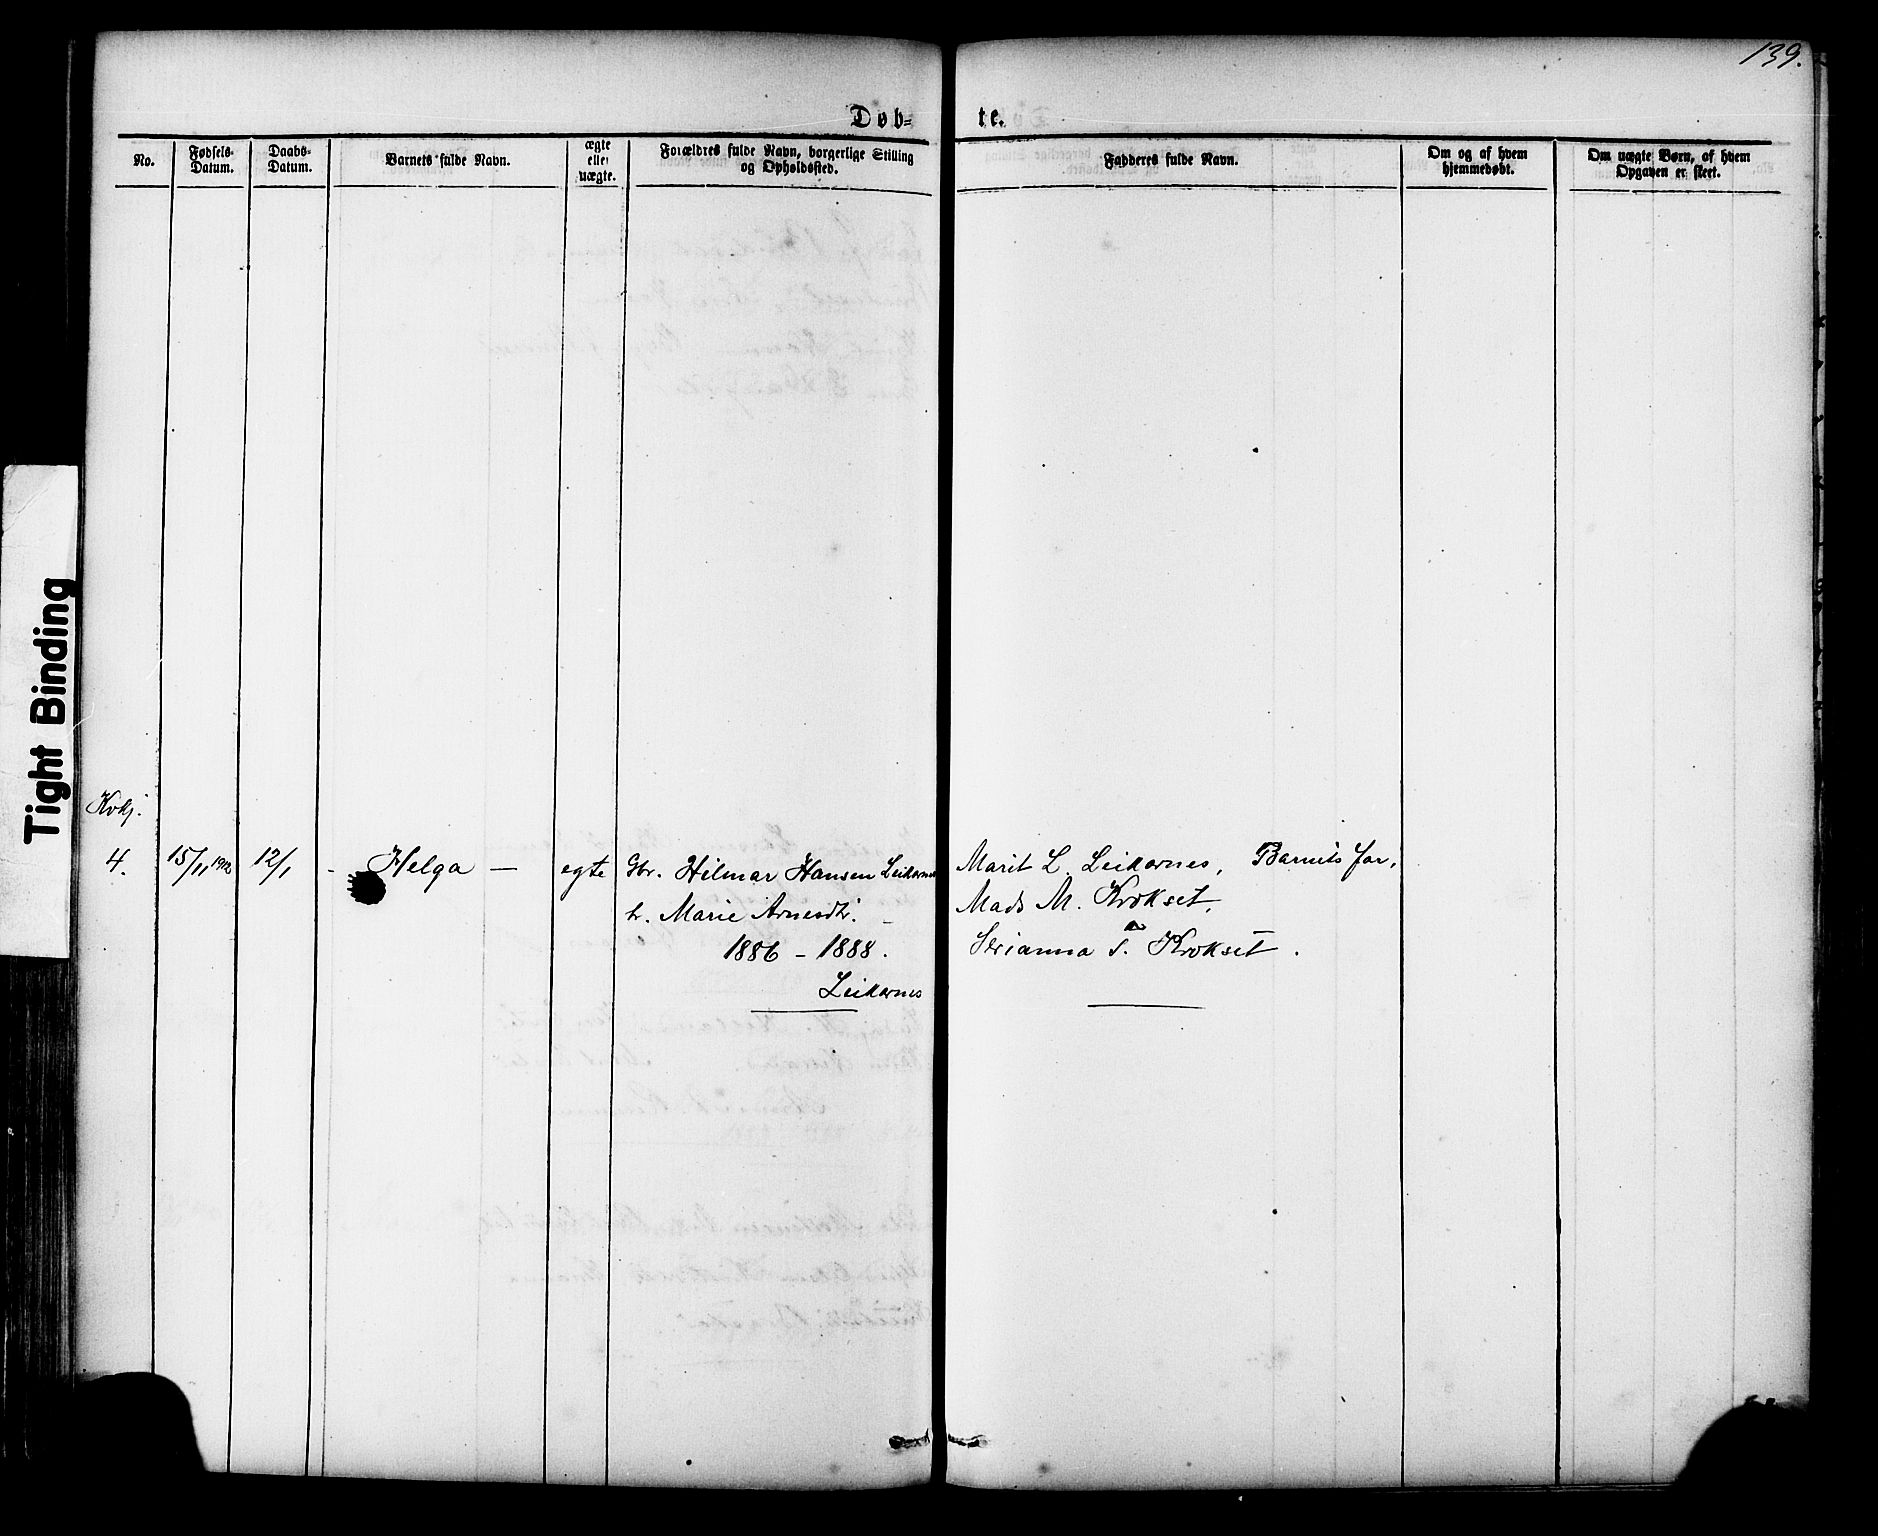 139.
Døb-
te.
No.
Fødsels-
Datum.
Daabs-
Datum.
Barnets fulde Navn.
ægte
eller
uægte.
Forældres fulde Navn, borgerlige Stilling
og Opholdssted.
Fadderes fulde Navn.
Om og af hvem
hjemmedøbt.
Om uægte Børn, af hvem
Opgaven er skeet.
Tight Binding
Kvkj.
4.
15/11 1912
12/1
- Helga —
egte
Gbr. Hilmar Hansen Leikarnes
h. Marie Arnesdtr.
1886 - 1888.
Leikarnes
Marit L. Leikarnes, Barnets far,
Mads M. Krokset,
Serianna T. Krokset.